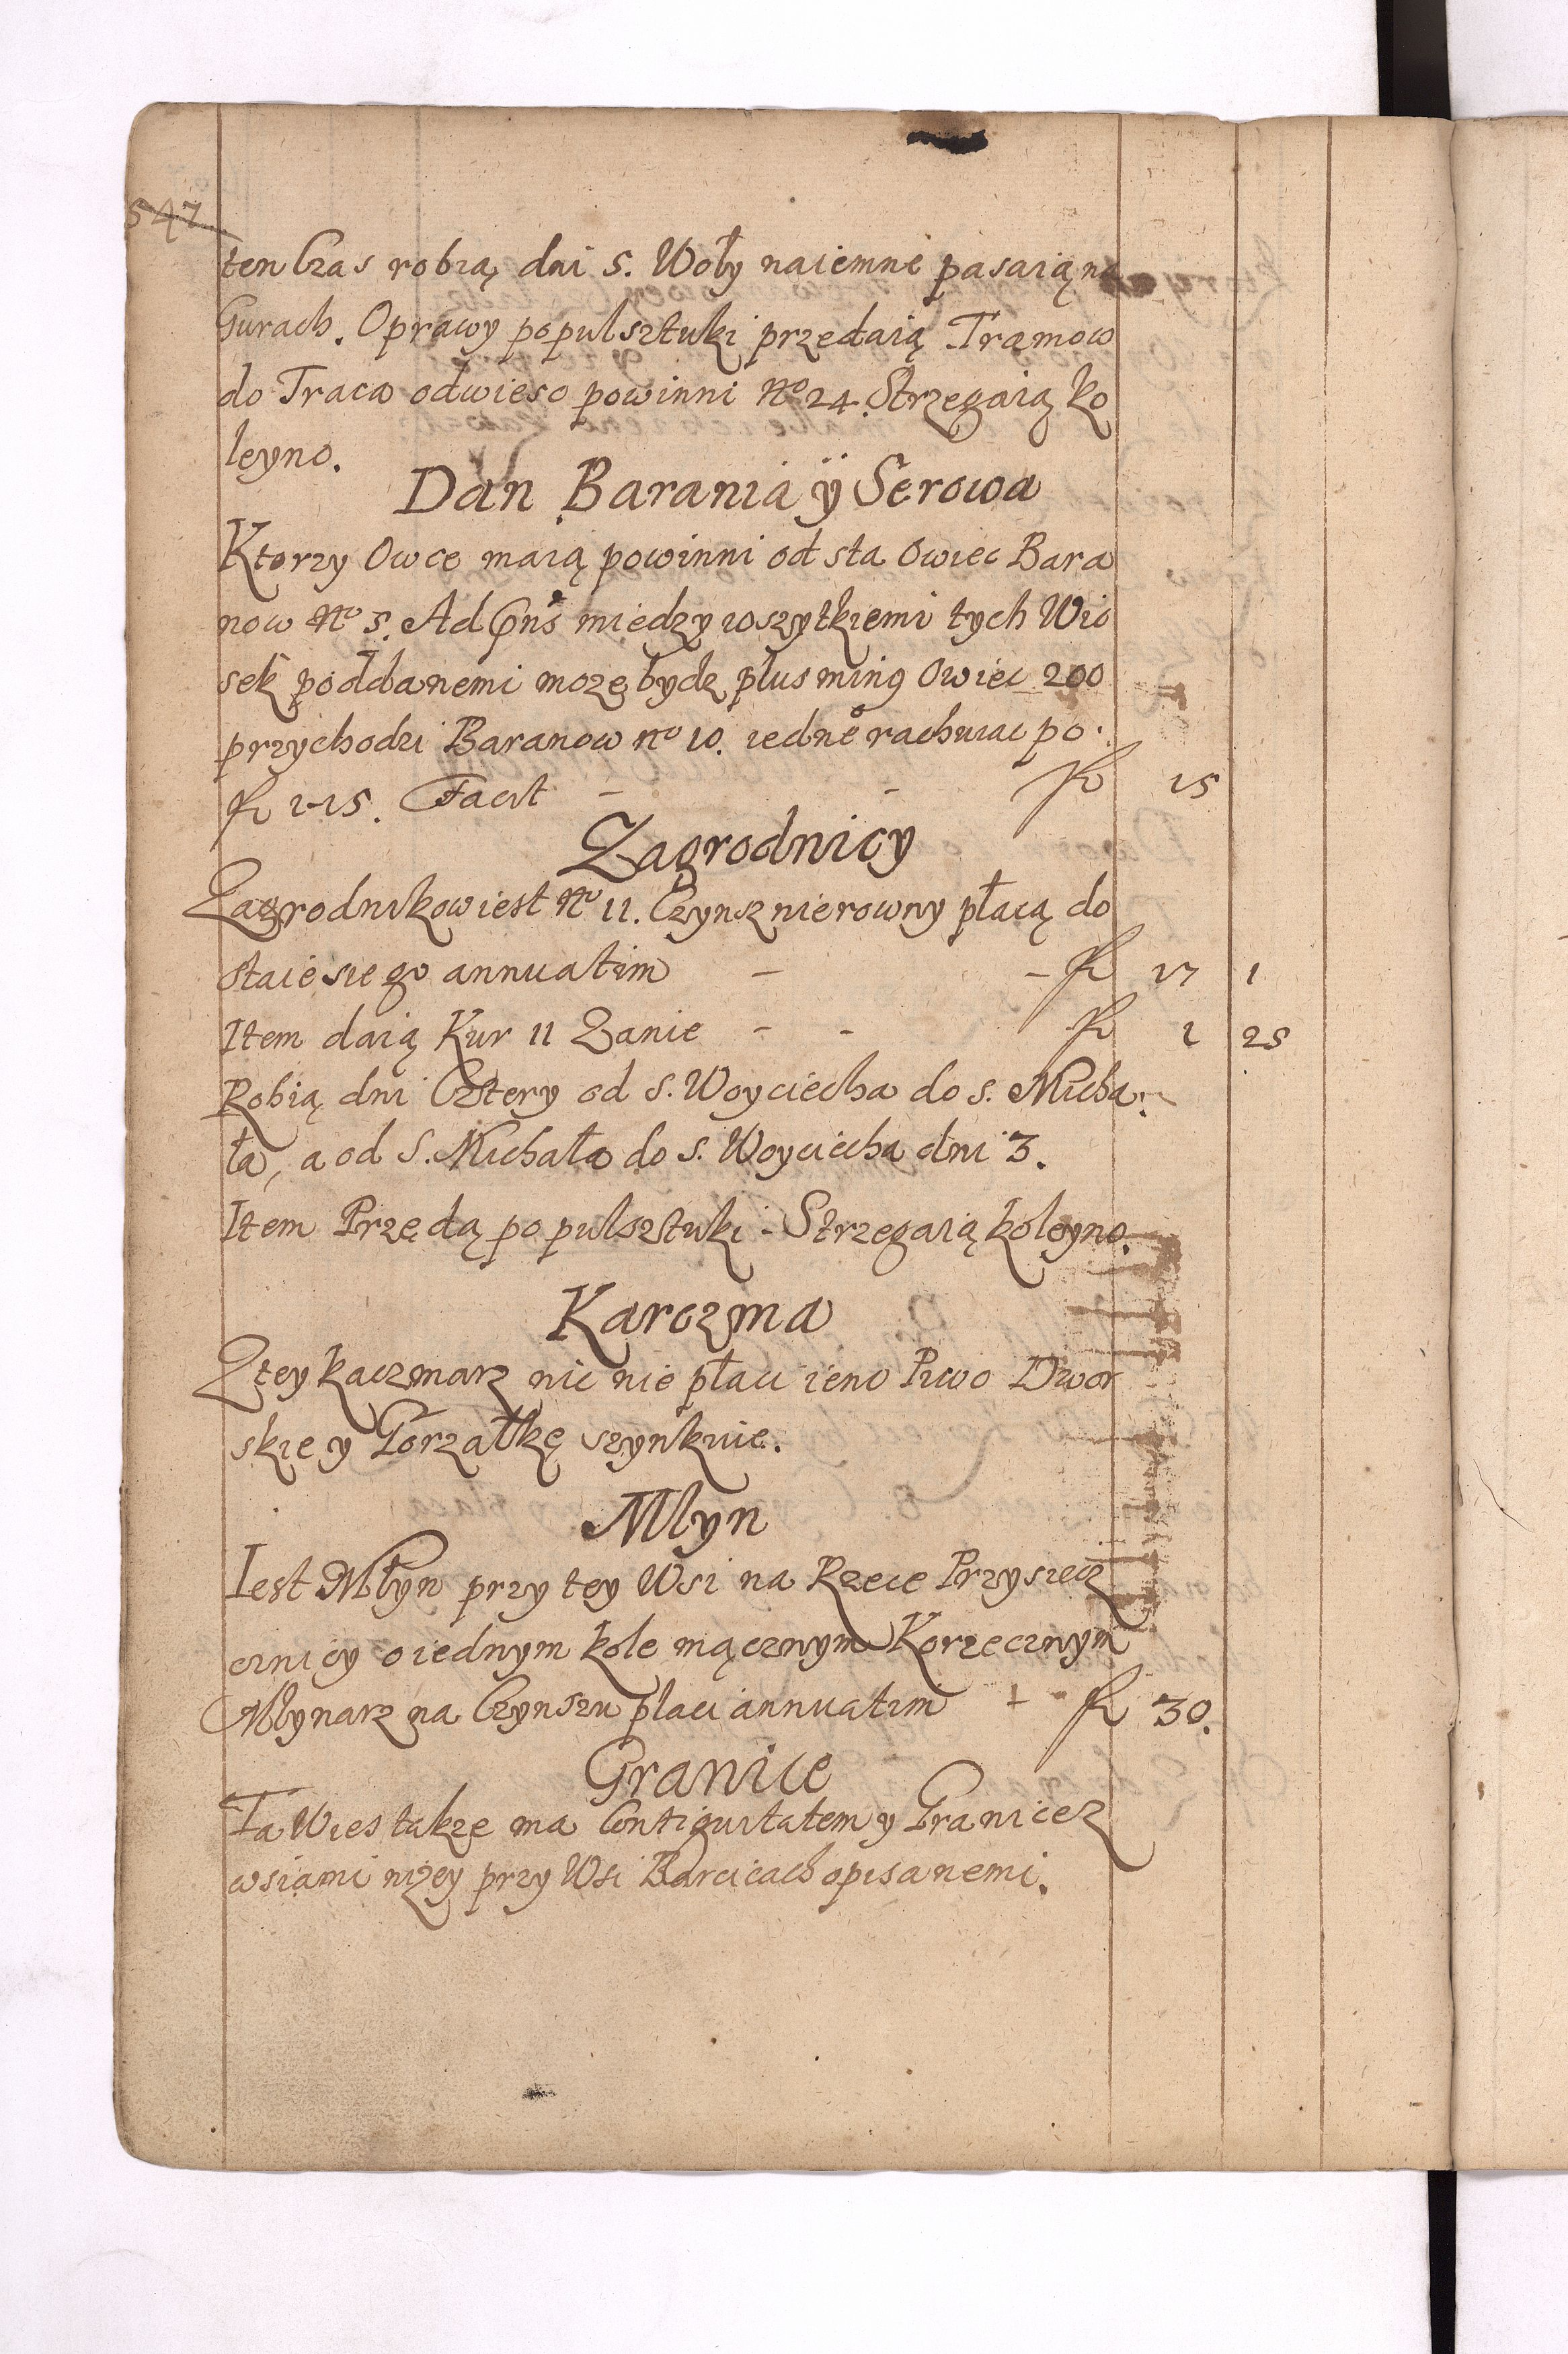 547
ten Czas robią dni 5. Woły naiemne pasaią na
Gurach. Oprawy po pulsztuki przedaią Tramow
do Traca odwieso powinni No 24. Strzegaią ko
leyno.
Dan Barania ÿ Serowa
Ktorzy Owce maią powinni od sta Owiec Bara
now No 5. Ad Pns miedzy wszytkiemi tych Wio
sek poddanemi moze bydz plus minq Owiec 200
przychodzi Baranow no 10. iedne rachuiac po
fl 1-15. Facit - - fl 15
Zagrodnicy
Zagrodnikow iest No 11. Czynsz nierowny płacą do
staie sie go annuatim - - fl 17 1
Item daią Kur 11 Zanie - - fl 1 25
Robią dni Cztery od S. Woyciecha do s. Micha
ła, a od S. Michała do S. Woyciecha dni 3.
Item Przedą po pulsztuki - Strzegaią koleyno.
Karczma
Z tey kaczmarz nic nie płaci ieno Piwo Dwor
skie y Gorzałkę szynkuie.
Mlyn
Iest Młyn przy tey Wsi na Rzece Przysiecz
cznicy o iednym kole mącznym Korzecznym
Młynarz na Czynszu placi annuatim - fl 30.
Granice
Ta Wies takze ma Contiguitatem y Granice z
wsiami nizey przy Wsi Barcicach opisanemi.